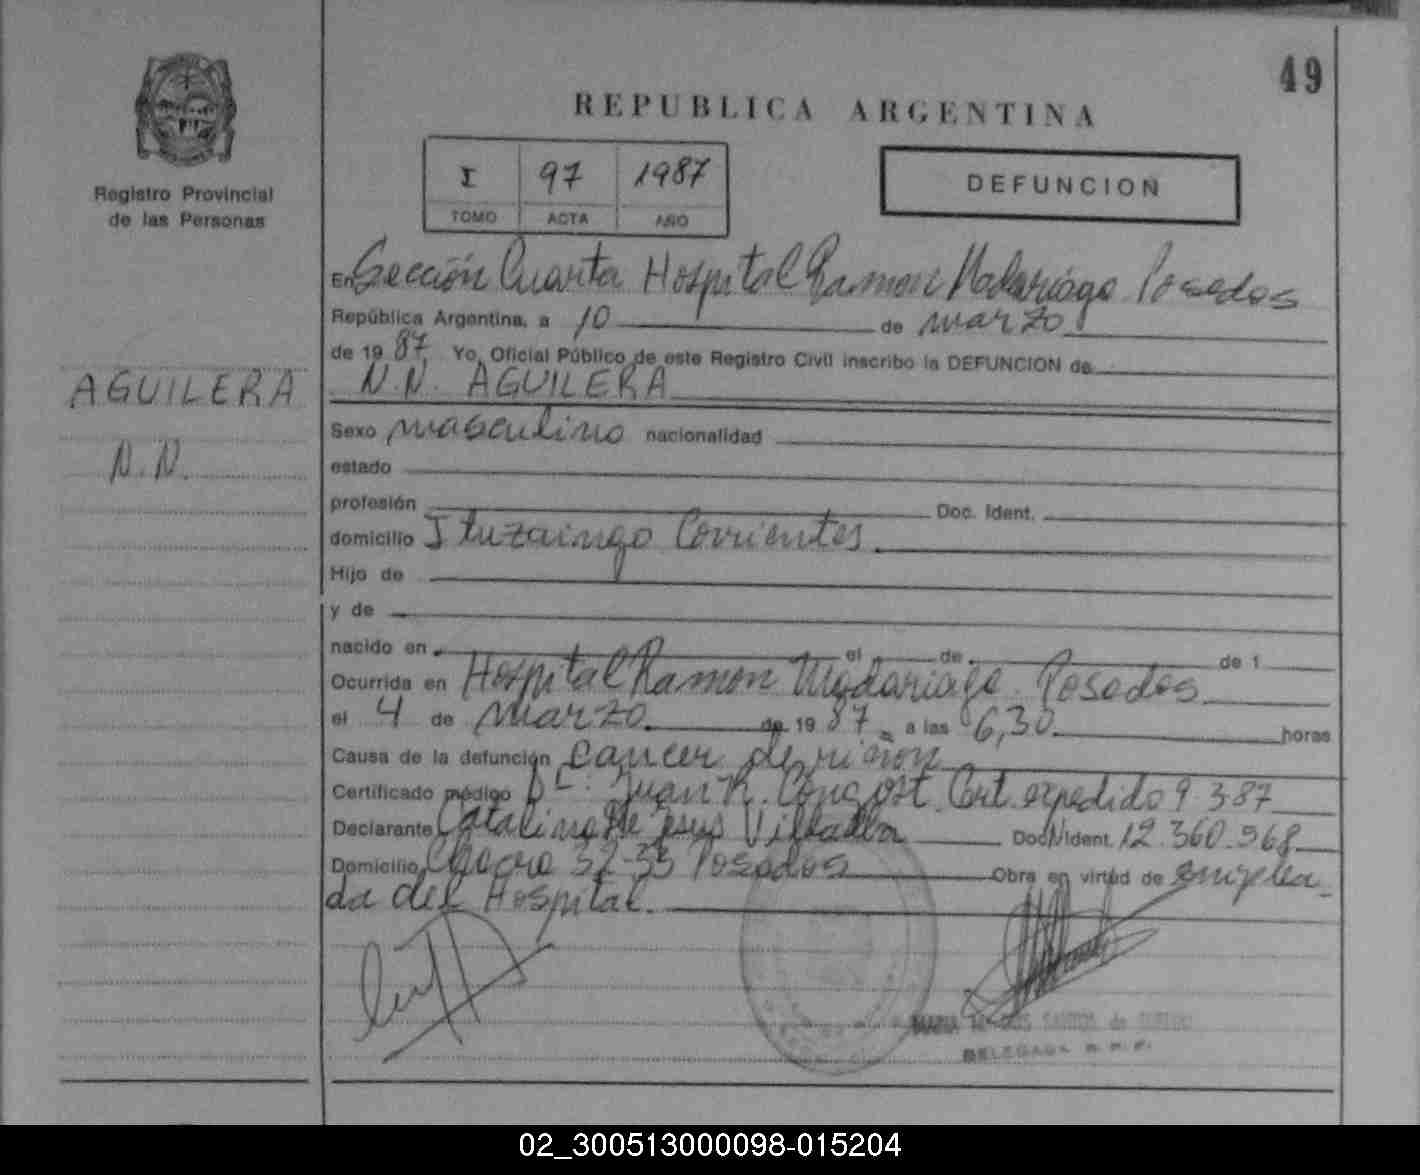 49
REPUBLICA ARGENTINA
Registro Provincial
de las Personas
I 97 1987
TOMO ACTA AÑO
DEFUNCION
AGUILERA
N.N.
En Sección Cuarta Hospital Ramon Madariaga Posadas
República Argentina, a 10 de marzo
de 19 87 Yo, Oficial Público de este Registro Civil inscribo la DEFUNCION de
N.N. AGUILERA
Sexo masculino nacionalidad
estado
profesión Doc. Ident.
domicilio Ituzaingo Corrientes.
Hijo de
y de
nacido en el de de 1
Ocurrida en Hospital Ramon Madariaga. Posadas
el 4 de marzo. de 19 87 a las 6,30 horas
Causa de la defunción cancer de riñon
Certificado médico Juan R. Cert. expedido 9.3.87
Declarante Catalina de Jesus Villalba Doc. Ident. 12.360.968
Domicilio Chacra 32-33 Posadas Obra en virtud de emplea-
da del Hospital.
MARIA DOS SANTOS de
DELEGADA R.P.P.
02_300513000098-015204